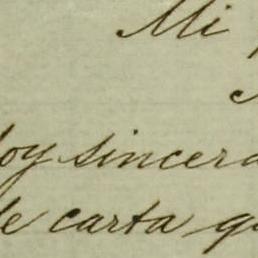 Mi
oy sincera
de carta qu